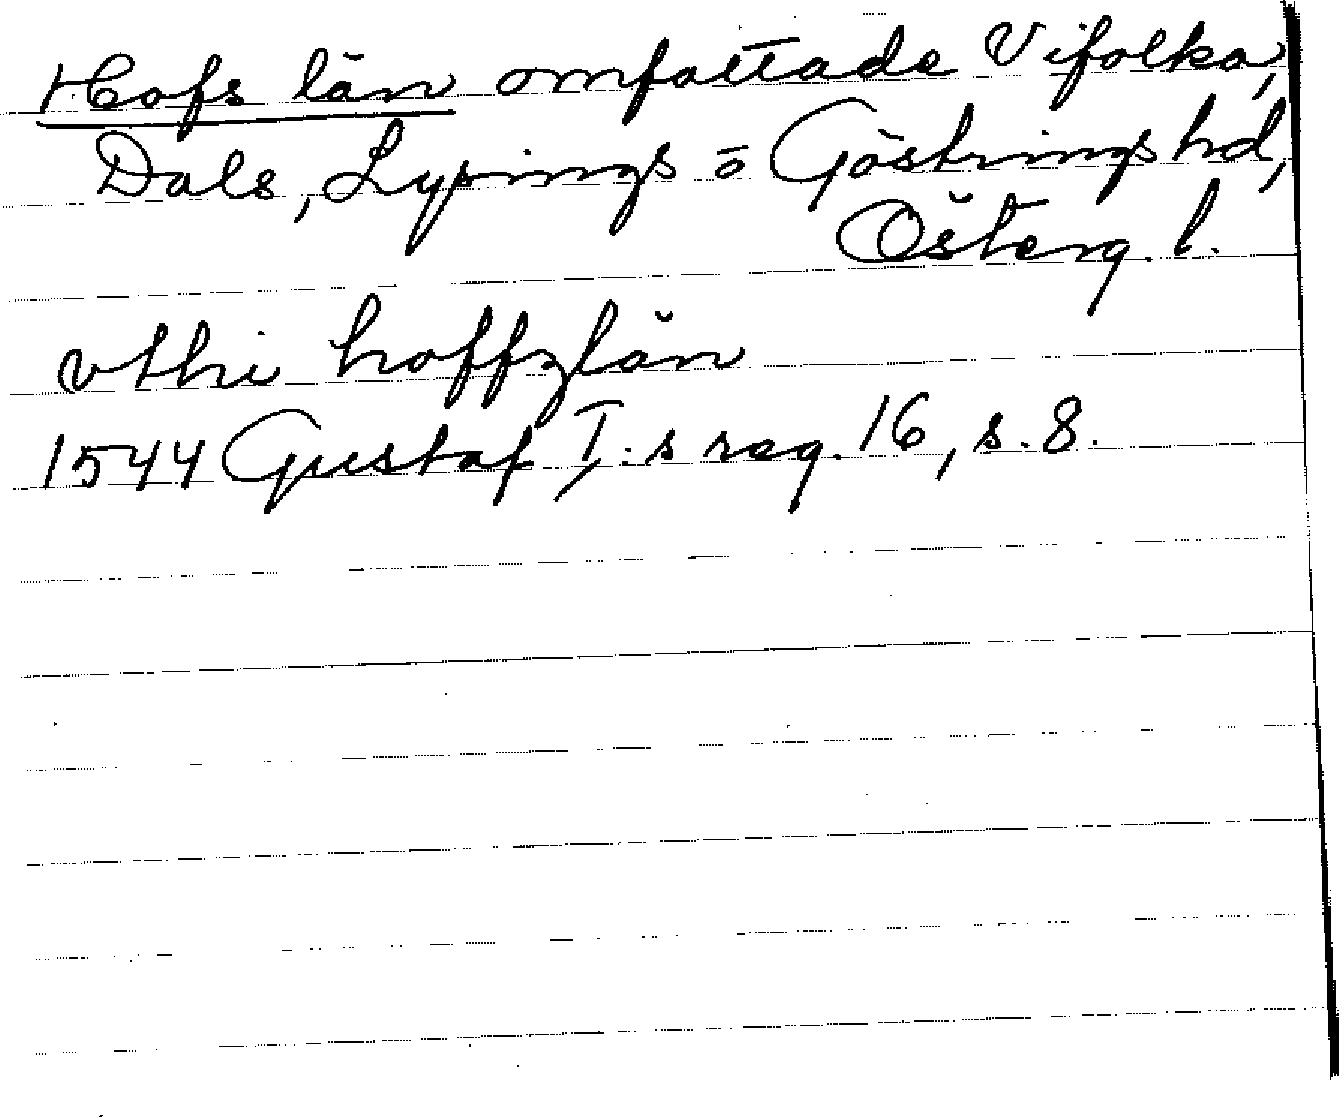 Hofs län omfattade Vifolka,
Dals, Lysings o Göstrings hd,
Österg. l.
vthi hoffzlän
1544 Gustaf I:s reg. 16, s. 8.